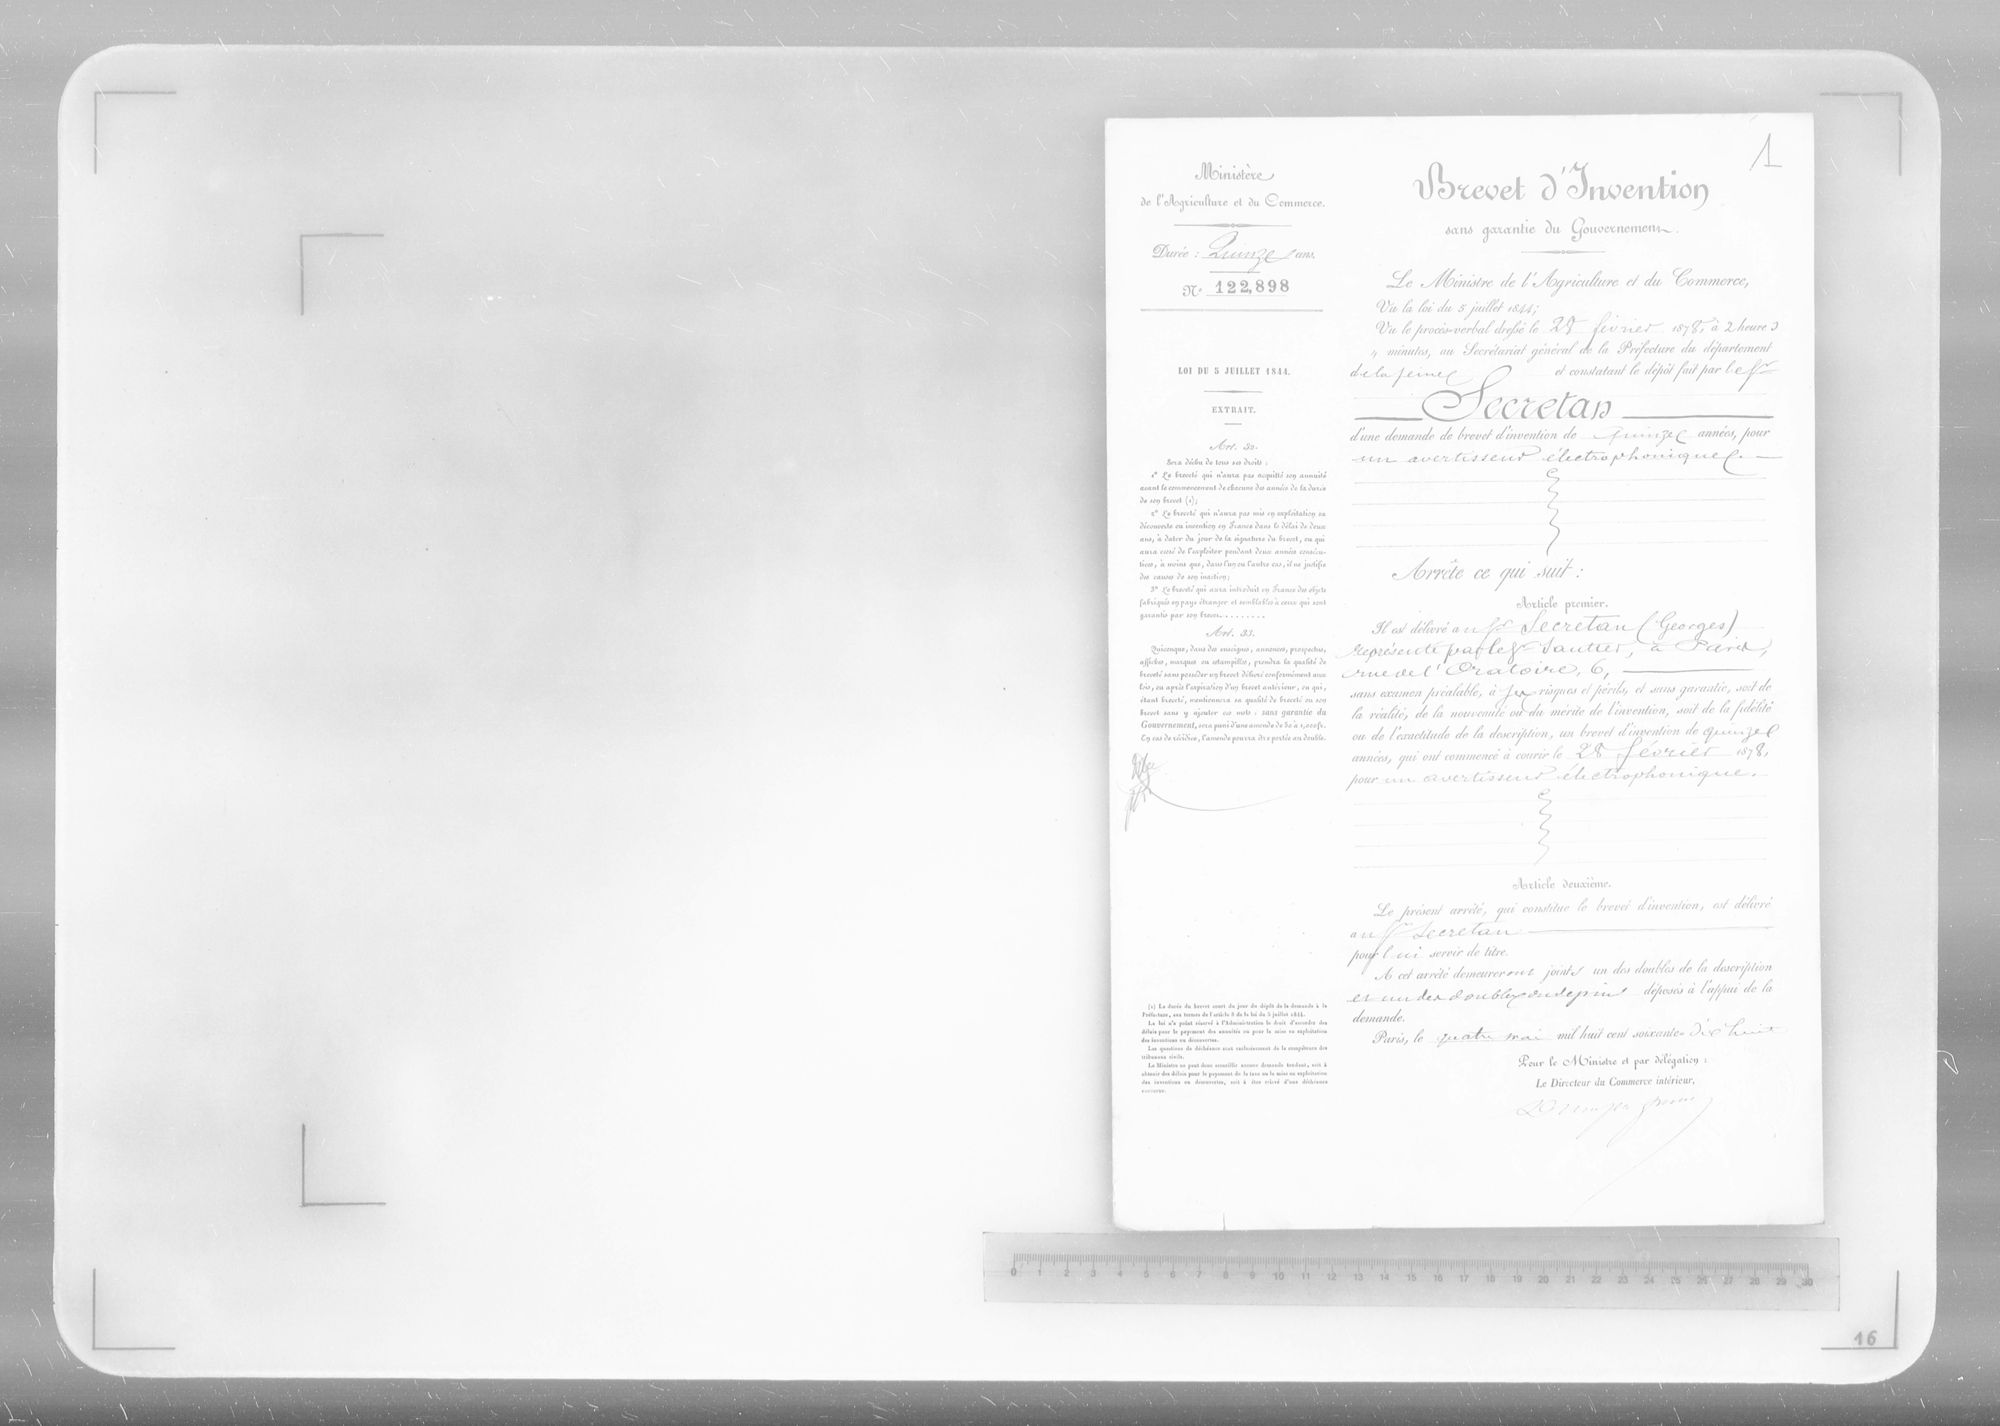 1
Ministère
de l'Agriculture et du Commerce.
Durée : Quinze ans.
N° 122,898
LOI DU 5 JUILLET 1844.
EXTRAIT.
Art. 32.
Sera déchu de tous ses droits :
1° Le breveté qui n'aura pas acquitté son annuité
avant le commencement de chacune des années de la durée
de son brevet (1);
2° Le breveté qui n'aura pas mis en exploitation sa
découverte ou invention en France dans le délai de deux
ans, à dater du jour de la signature du brevet, ou qui
aura cessé de l'exploiter pendant deux années consécu-
tives, à moins que, dans l'un ou l'autre cas, il ne justifie
des causes de son inaction;
3° Le breveté qui aura introduit en France des objets
fabriqués en pays étranger et semblables à ceux qui sont
garantis par son brevet.........
Art. 33.
Quiconque, dans des enseignes, annonces, prospectus,
affiches, marques ou estampilles, prendra la qualité de
breveté sans posséder un brevet délivré conformément aux
lois, ou après l'expiration d'un brevet antérieur, ou qui,
étant breveté, mentionnera sa qualité de breveté ou son
brevet sans y ajouter ces mots : sans garantie du
Gouvernement, sera puni d'une amende de 50 à 1,000 fr.
En cas de récidive, l'amende pourra être portée au double.
(1) La durée du brevet court du jour du dépôt de la demande à la
Préfecture, aux termes de l'article 8 de la loi du 5 juillet 1844.
La loi n'a point réservé à l'Administration le droit d'accorder des
délais pour le payement des annuités ou pour la mise en exploitation
des inventions ou découvertes.
Les questions de déchéance sont exclusivement de la compétence des
tribunaux civils.
Le Ministre ne peut donc accueillir aucune demande tendant, soit à
obtenir des délais pour le payement de la taxe ou la mise en exploitation
des inventions ou découvertes, soit à être relevé d'une déchéance
encourue.
Brevet d'Invention
sans garantie du Gouvernement.
Le Ministre de l'Agriculture et du Commerce,
Vu la loi du 5 juillet 1844;
Vu le procès-verbal dressé le 28 février 1878, à 2 heures
" minutes, au Secrétariat général de la Préfecture du département
de la Seine et constatant le dépôt fait par le Sr
Secretan
d'une demande de brevet d'invention de quinze années, pour
un avertisseur électrophonique.
Arrête ce qui suit :
Article premier.
Il est délivré au Sr Secretan (Georges)
représenté par le Sr Sautter, à Paris,
rue de l'Oratoire, 6,
sans examen préalable, à ses risques et périls, et sans garantie, soit de
la réalité, de la nouveauté ou du mérite de l'invention, soit de la fidélité
ou de l'exactitude de la description, un brevet d'invention de quinze
années, qui ont commencé à courir le 28 février 1878,
pour un avertisseur électrophonique.
Article deuxième.
Le présent arrêté, qui constitue le brevet d'invention, est délivré
au Sr Secretan
pour lui servir de titre.
A cet arrêté demeureront joints un des doubles de la description
et un des doubles du dessin déposés à l'appui de la
demande.
Paris, le quatre mai mil huit cent soixante-dix huit
Pour le Ministre et par délégation :
Le Directeur du Commerce intérieur,
0 1 2 3 4 5 6 7 8 9 10 11 12 13 14 15 16 17 18 19 20 21 22 23 24 25 26 27 28 29 30
16